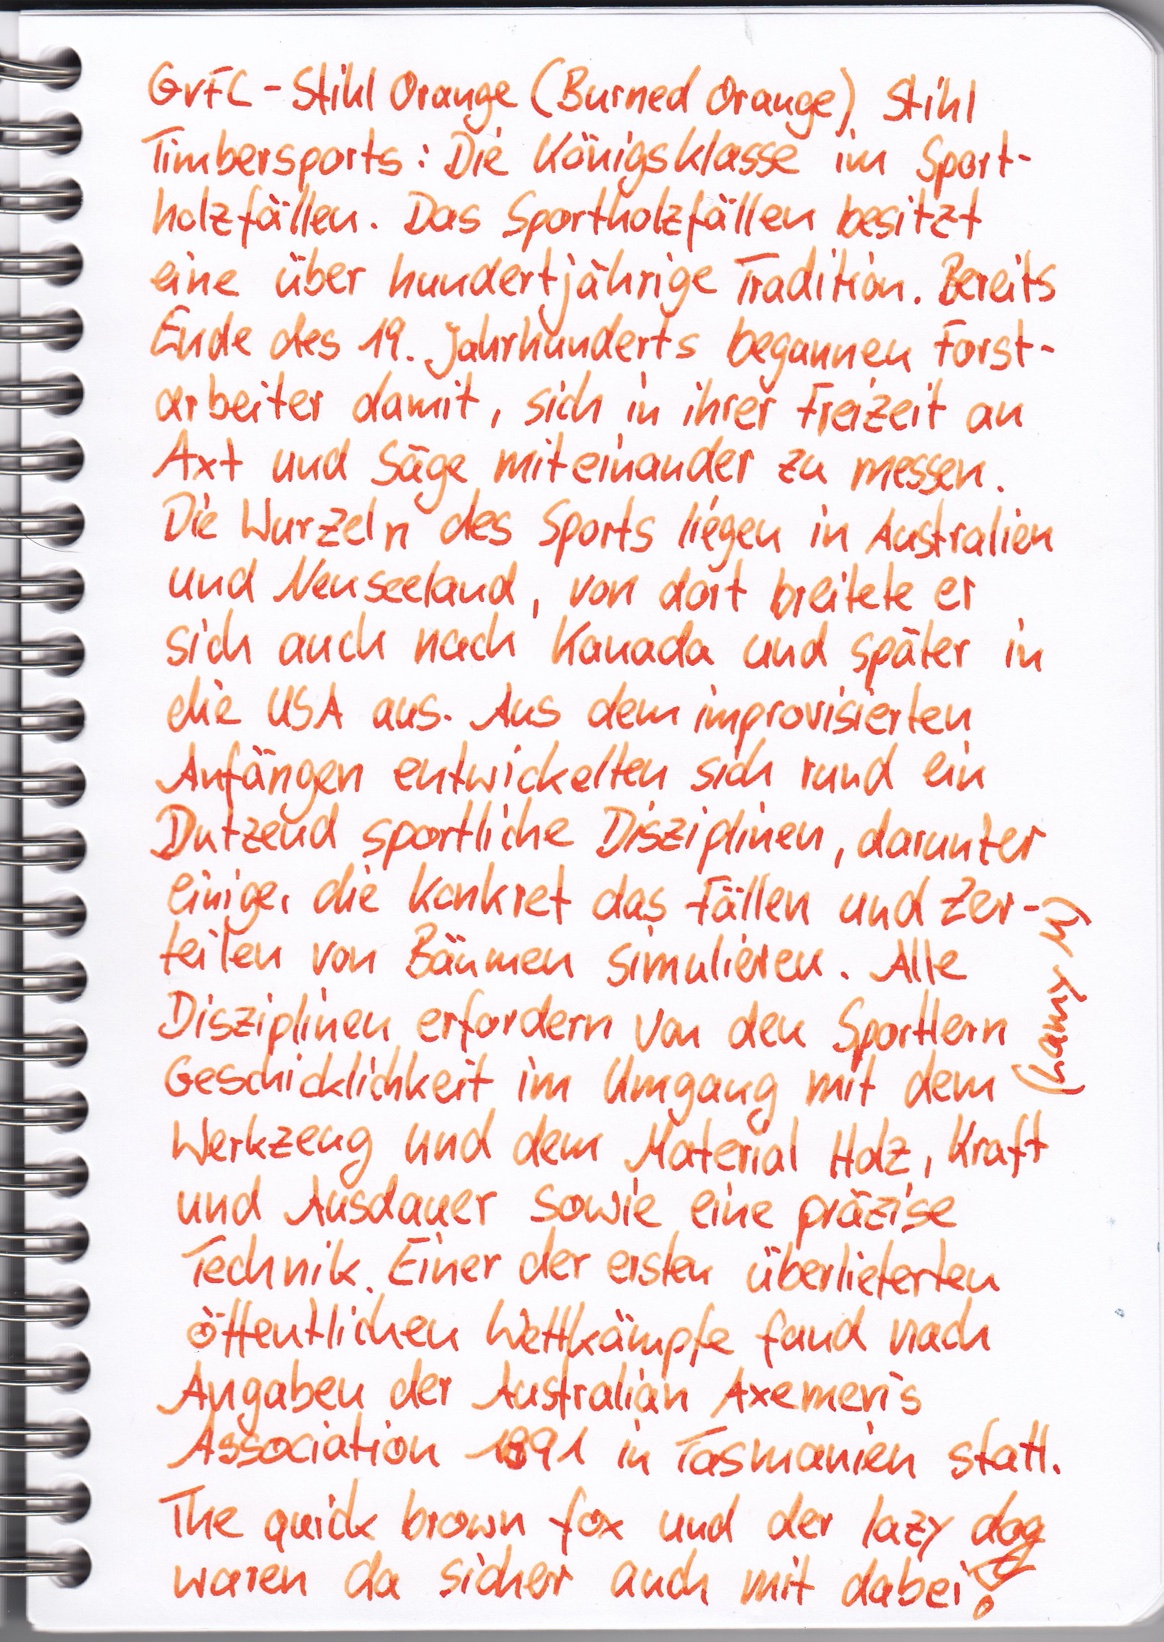 GvFC - Stihl Orange (Burned Orange) Stihl
Timbersports: Die Königsklasse im Sport-
holzfällen. Das Sportholzfällen besitzt
eine über hundertjährige Tradition. Bereits
Ende des 19. Jahrhunderts begannen Forst-
arbeiter damit, sich in ihrer Freizeit an
Axt und Säge miteinander zu messen.
Die Wurzeln des Sports liegen in Australien
und Neuseeland, von dort breitete er
sich auch nach Kanada und später in
die USA aus. Aus dem improvisierten
Anfängen entwickelten sich rund ein
Dutzend sportliche Disziplinen, darunter
einige, die konkret das Fällen und Zer-
teilen von Bäumen simulieren. Alle
Disziplinen erfordern von den Sportlern
Geschicklichkeit im Umgang mit dem
Werkzeug und dem Material Holz, Kraft
und Ausdauer sowie eine präzise
Technik. Einer der ersten überlieferten
öffentlichen Wettkämpfe fand nach
Angaben der Australian Axemen's
Association 1891 in Tasmanien statt.
The quick brown fox und der lazy dog
waren da sicher auch mit dabei!
(Lamy M)